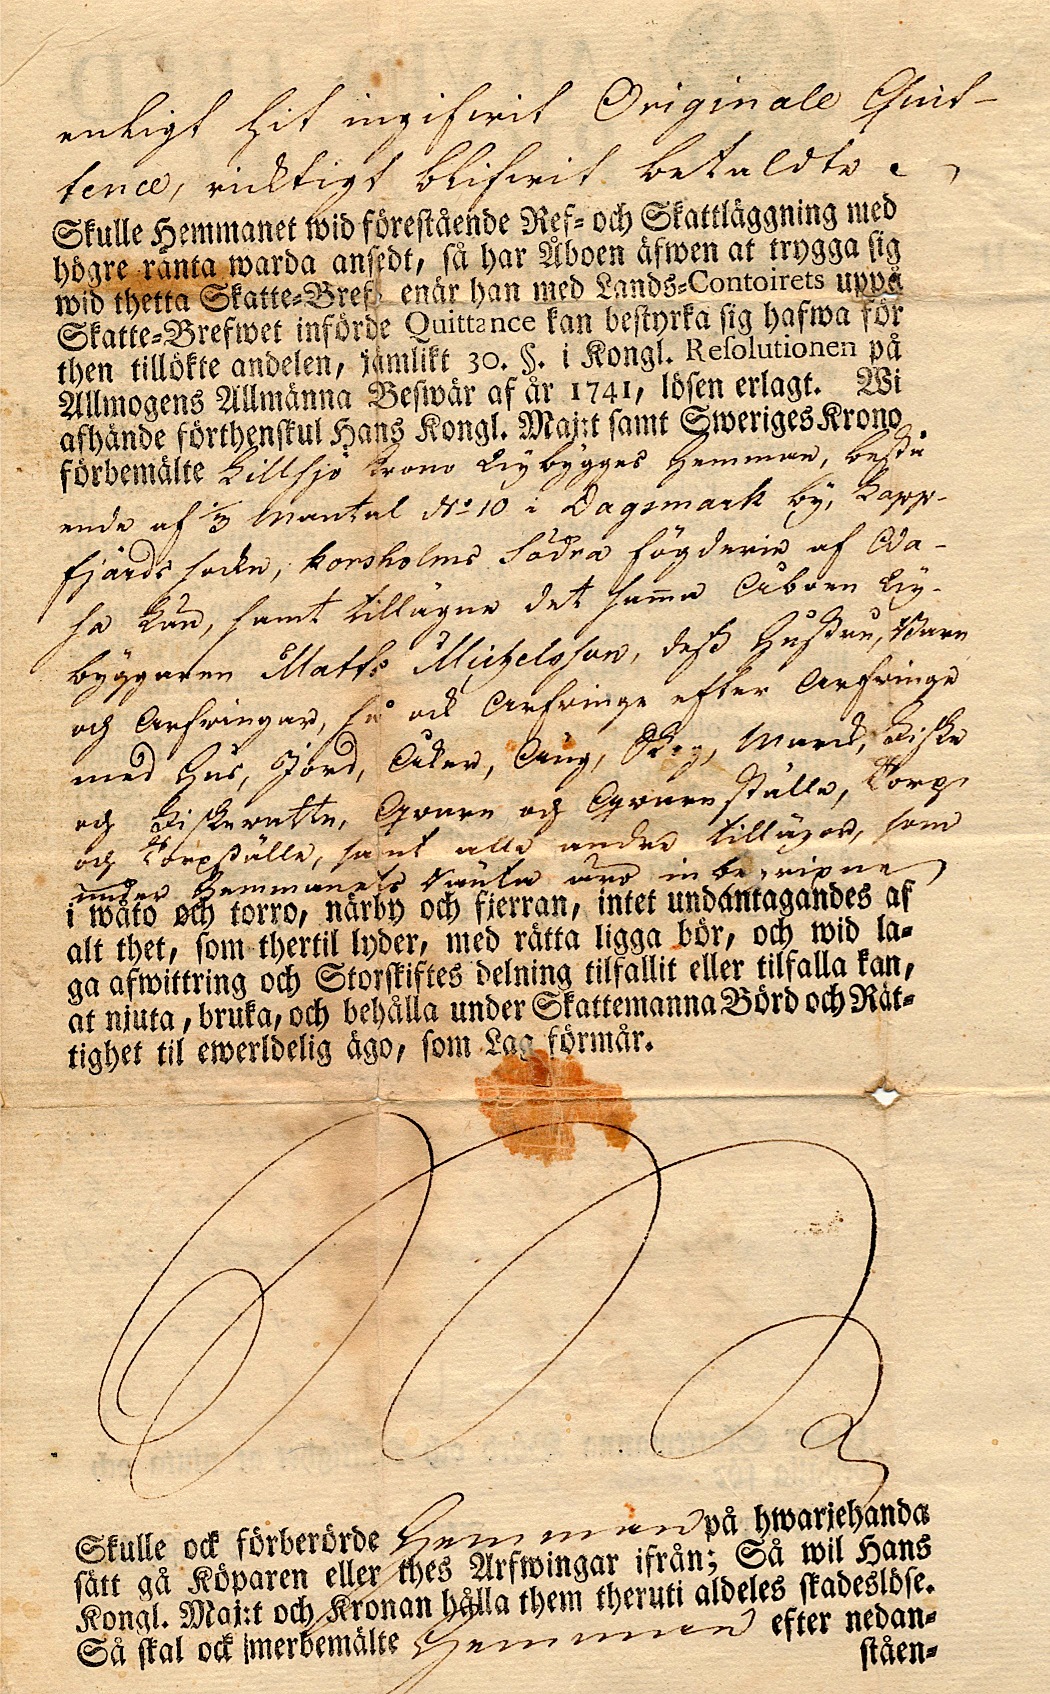 enligt hit ingifwit Originale Quit-
tence, riktigt blifwit betaldte
Skulle Hemmanet wid förestående Ref- och Skattläggning med
högre ränta warda ansedt, så har Åboen äfwen at trygga sig
wid thetta Skatte-Bref, enär han med Lands-Contoirets uppå
Skatte-Brefwet införde Quittance kan bestyrka sig hafwa för
then tillökte andelen, jämlikt 30. §. i Kongl. Resolutionen på
Allmogens Allmänna Beswär af år 1741, lösen erlagt. Wi
afhände förthenskul Hans Kongl. Maj:t samt Sweriges Krono
förbemälte Lillsjö Krono Nybygges Hemman, bestå
ende af 1/3 Mantal No 10 i Dagsmark by, Lapp-
fjärds sockn, Korsholms Södra fögderie af Wa-
sa Län, samt tillägne det samma Åboen Ny-
byggaren Matts Michelsson, dess Hustru, Barn
och Arfwingar, så ock Arfwinge efter Arfwinge
med Hus, Jord, Åker, Äng, Skog, Mark, Fiske
och Fiskerätte, Qvarn och Qvarnställe, Torp
och Torpställe, samt alla andre tillägor, som
under Hemmanets Ränta äro inbegripne
i wåto och torro, närby och fjerran, intet undantagandes af
alt thet, som thertil lyder, med rätta ligga bör, och wid la-
ga afwittring och Storskiftes delning tilfallit eller tilfalla kan,
at njuta, bruka, och behålla under Skattemanna Börd och Rät-
tighet til ewerldelig ägo, som Lag förmår.
Skulle ock förberörde Hemman på hwarjehanda
sätt gå Köparen eller thes Arfwingar ifrån; Så wil Hans
Kongl. Maj:t och Kronan hålla them theruti aldeles skadeslöse.
Så skal ock merbemälte Hemman efter nedan-
ståen-